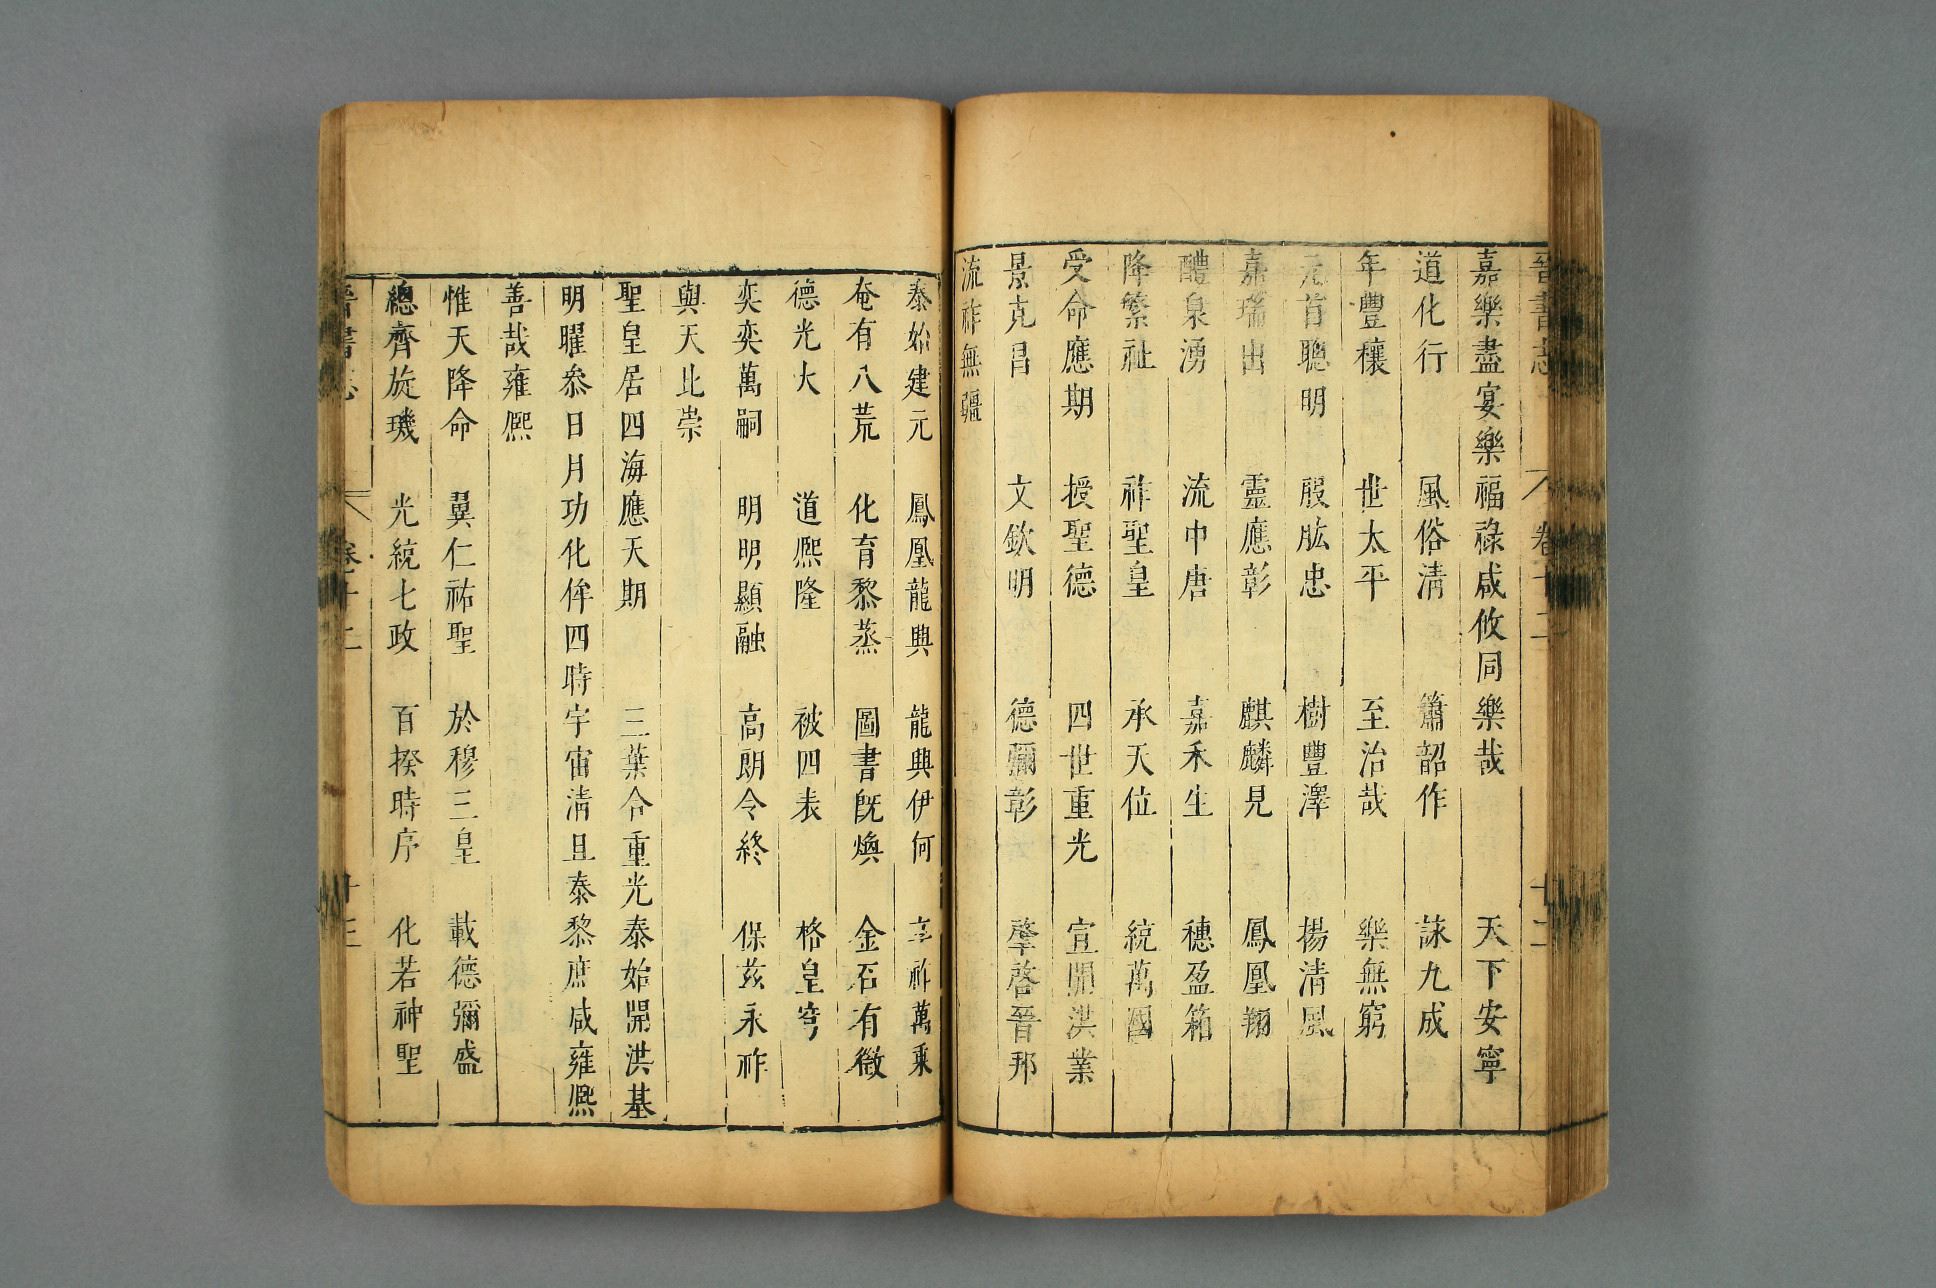 晉書志 卷十二 十二
嘉樂盡宴樂福祿咸攸同樂哉 天下安寧
道化行 風俗清 簫韶作 詠九成
年豐穰 世太平 至治哉 樂無窮
元首聰明 股肱忠 樹豐澤 揚清風
嘉瑞出 靈應彰 麒麟見 鳳凰翔
醴泉湧 流中唐 嘉禾生 穗盈箱
降繁祉 祚聖皇 承天位 統萬國
受命應期 授聖德 四世重光 宣開洪業
景克昌 文欽明 德彌彰 肇啓晉邦
流祚無疆
泰始建元 鳳凰龍興 龍興伊何 享祚萬乘
奄有八荒 化育黎蒸 圖書旣煥 金石有徵
德光大 道熙隆 被四表 格皇穹
奕奕萬嗣 明明顯融 高朗令終 保茲永祚
與天比崇
聖皇居四海應天期 三葉合重光泰始開洪基
明曜參日月功化侔四時宇宙清且泰黎庶咸雍熙
善哉雍熙
惟天降命 翼仁祐聖 於穆三皇 載德彌盛
總齊旋璣 光統七政 百揆時序 化若神聖
晉書志 卷十二 十三